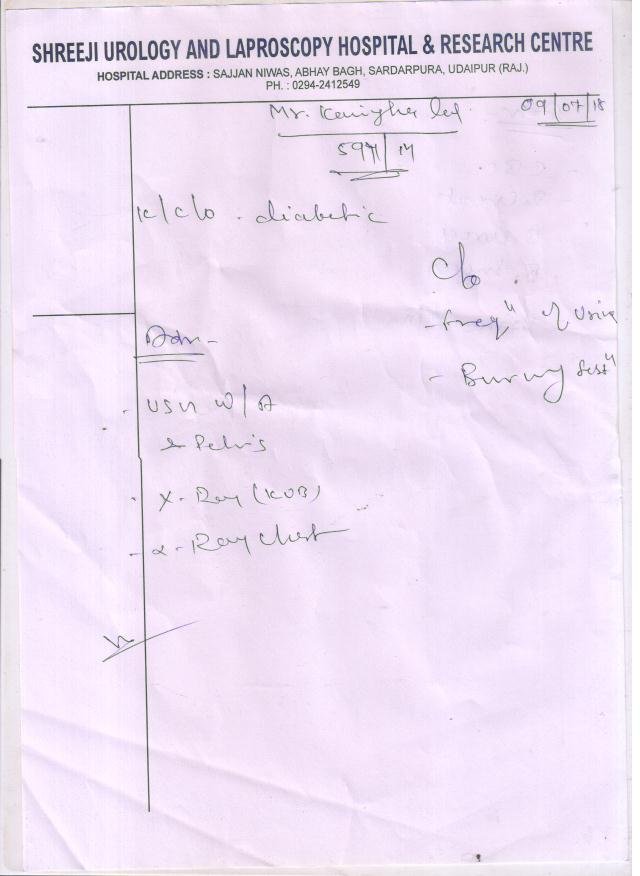 SHREEJI UROLOGY AND LAPROSCOPY HOSPITAL & RESEARCH CENTRE
HOSPITAL ADDRESS : SAJJAN NIWAS, ABHAY BAGH, SARDARPURA, UDAIPUR (RAJ.)
PH. : 0294-2412549
Mr.
09/07/18
K/C/O . diabetic
C/o
- freqⁿ of Urine
- Burning
Adv -
USG W/A
& Pelvis
X-Ray (KUB)
X-Ray Chest